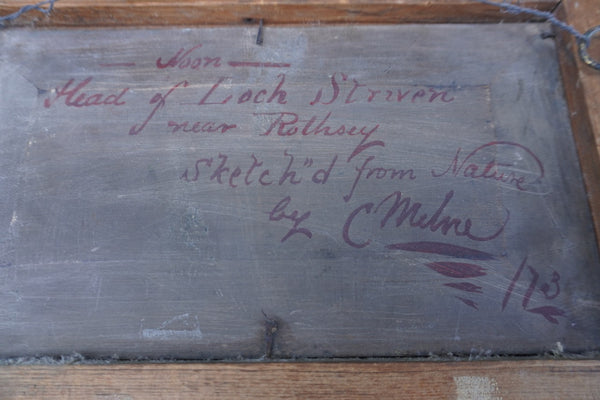 — Noon —
Head of Loch Striven
near Rothsey
Sketch"d from Nature
by C Milne
173